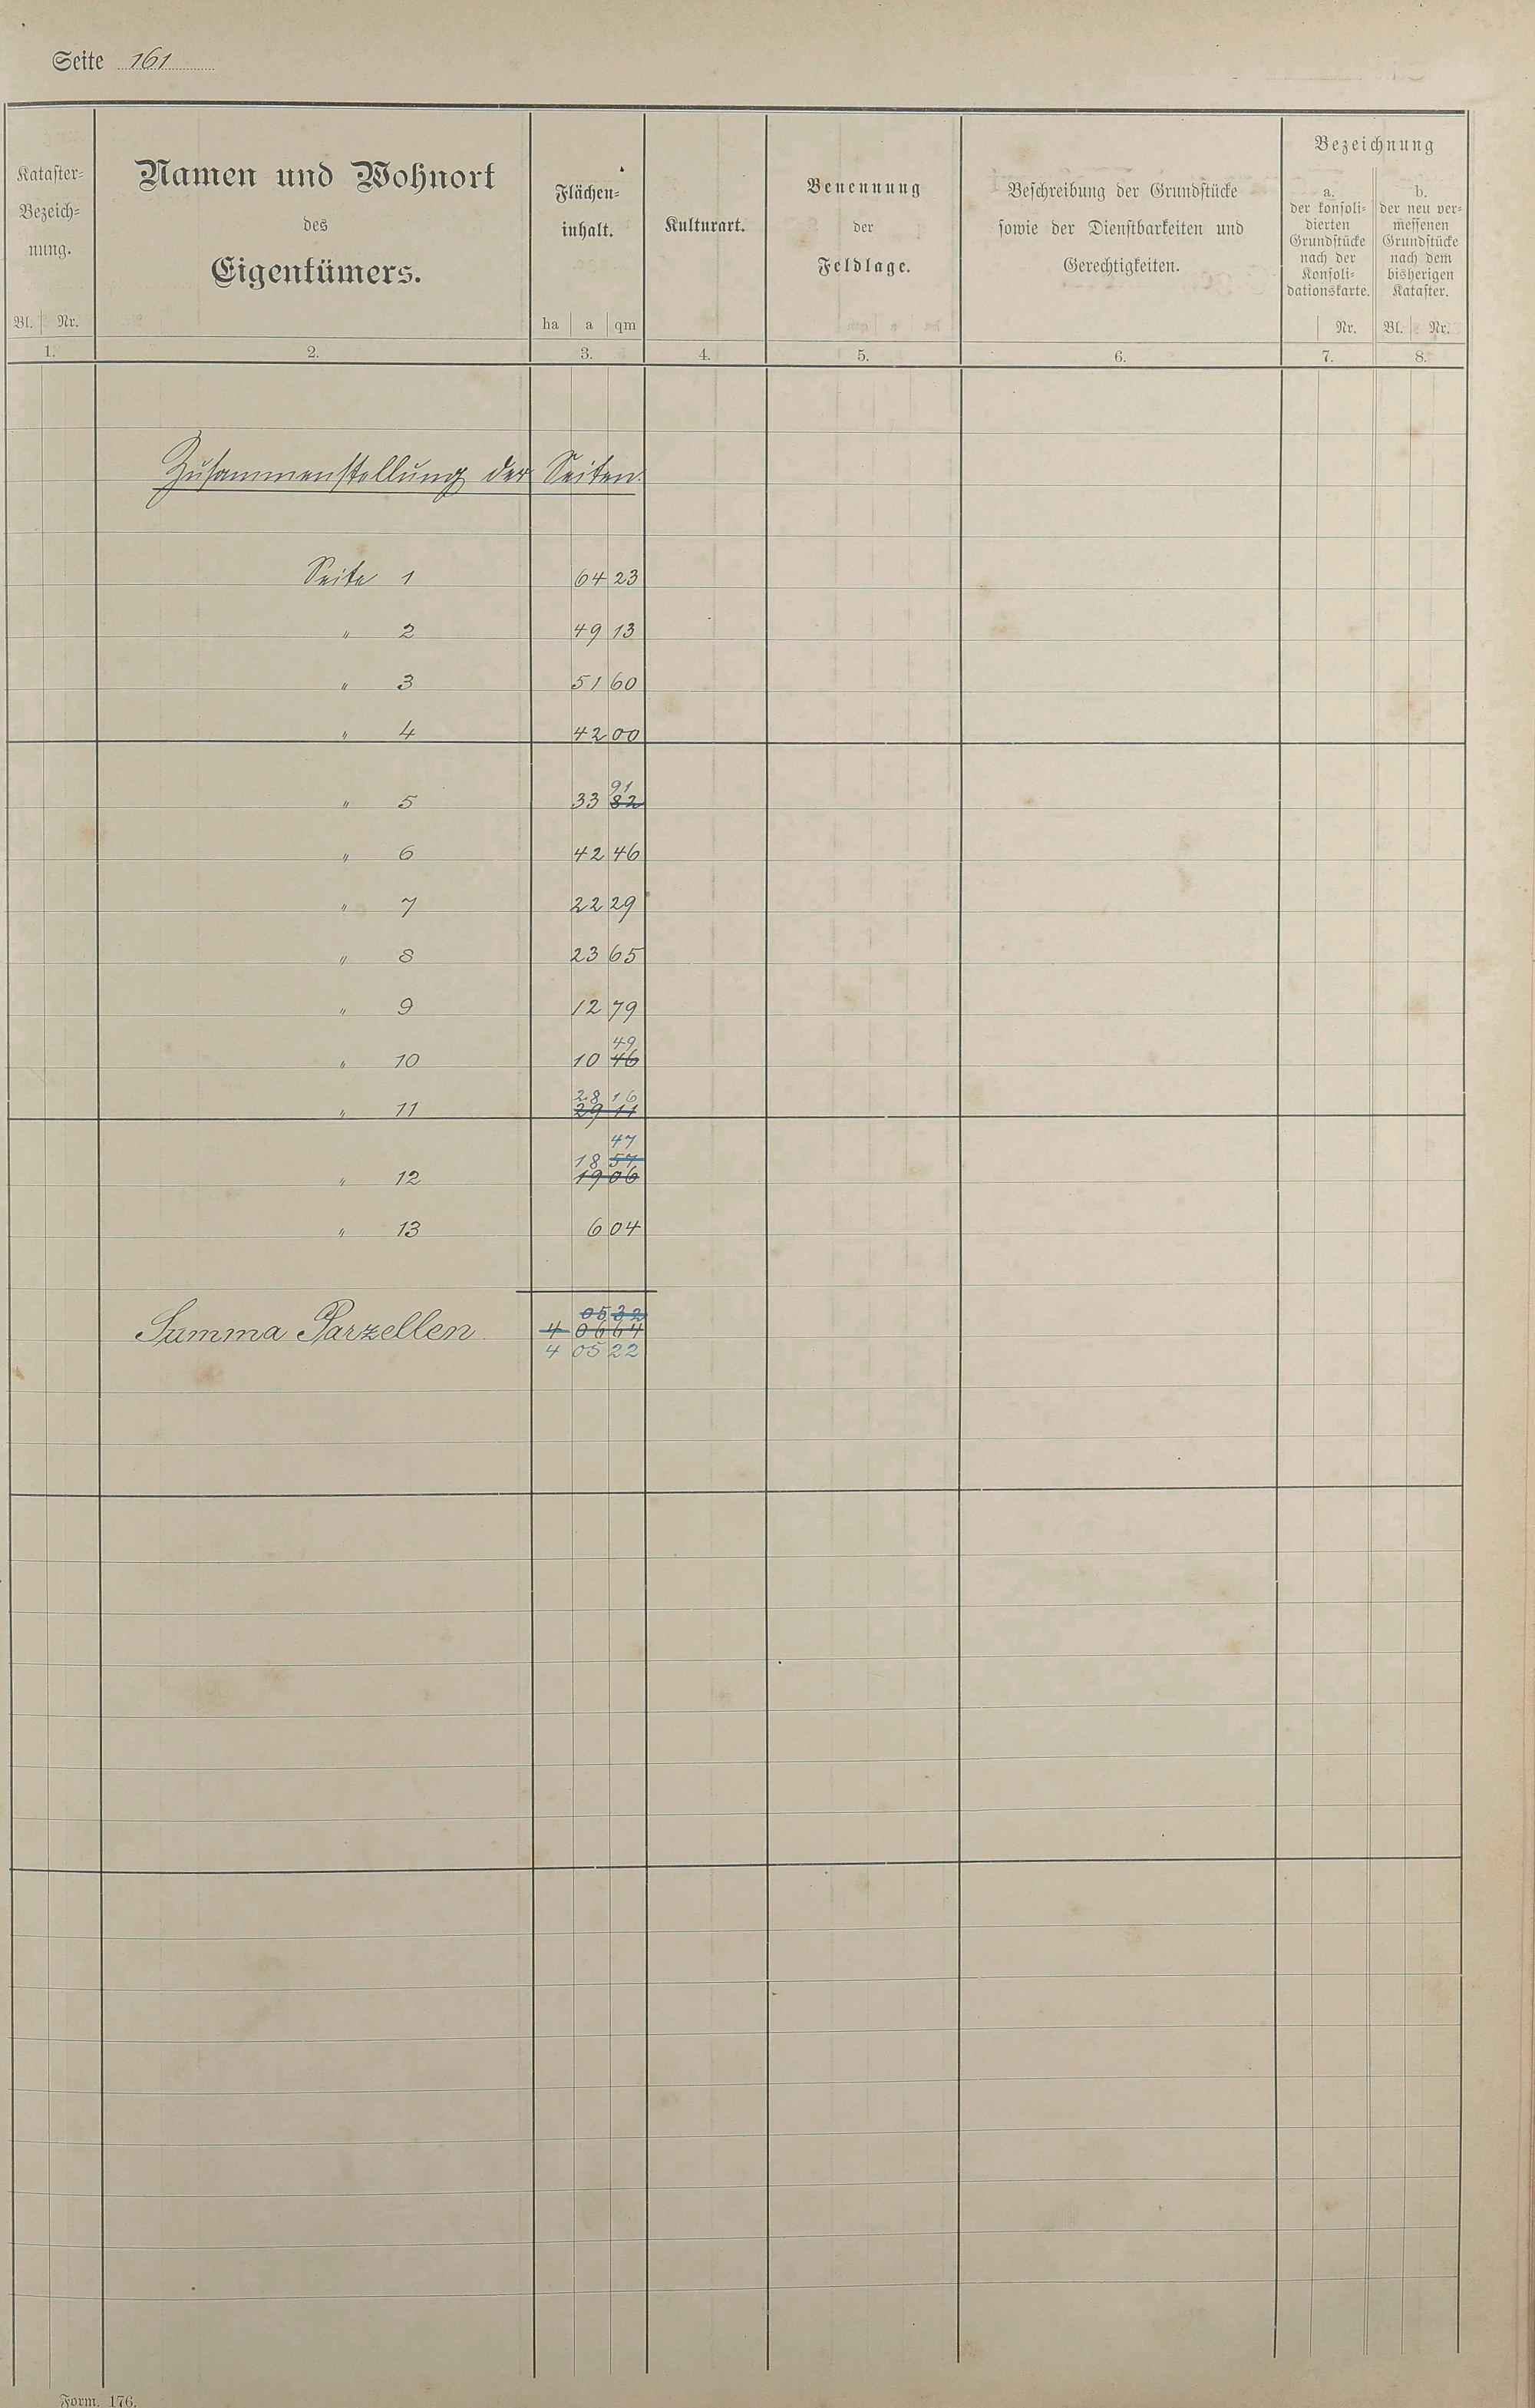 Seite 161
Kataster-
Bezeich-
nung.
Bl. Nr.
1.
Namen und Wohnort
des
Eigentümers.
2.
Flächen-
inhalt.
ha a qm
3.
Kulturart.
4.
Benennung
der
Feldlage.
5.
Beschreibung der Grundstücke
sowie der Dienstbarkeiten und
Gerechtigkeiten.
6.
Bezeichnung
a.
der konsoli-
dierten
Grundstücke
nach der
Konsoli-
dationskarte.
Nr.
7.
b.
der neu ver-
messenen
Grundstücke
nach dem
bisherigen
Kataster.
Bl. Nr.
8.
Zusammenstellung der Seiten.
Seite 1 64 23
" 2 49 13
" 3 51 60
" 4 42 00
91
" 5 33 82
" 6 42 46
" 7 22 29
" 8 23 65
" 9 12 79
49
" 10 10 46
28 16
" 11 29 11
47
18 57
" 12 19 06
" 13 6 04
05 32
Summa Parzellen 4 06 64
4 05 22
Form. 176.